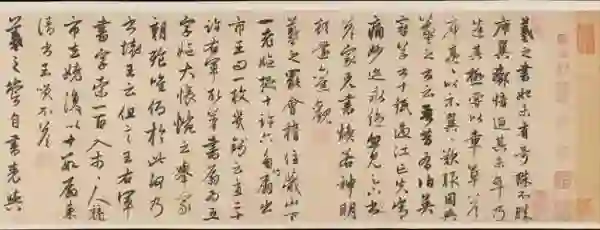 羲之書初未有奇殊不勝
庾翼郗愔迨其末年乃
造其極嘗以章草答
庾亮亮以示翼翼歎服因與
羲之書云吾昔有伯英
章草十紙過江亡失常
痛妙迹永絕忽見足下
答家兄書煥若神明
頓還舊觀
羲之罷會稽住蕺山下
一老姥捉十許六角竹扇出
市王問一枚幾錢云直二十
許右軍取筆書扇扇為五
字姥大悵惋云舉家
朝飡唯仰於此何乃
書壞王云但言王右軍
書字索一百入市市人競
市去姥復以十數扇來
請書王笑不答
羲之嘗自書表與